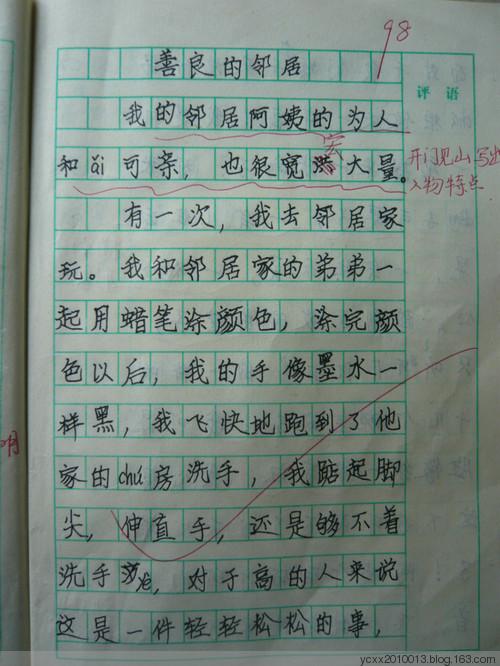 98
善良的邻居
评语
我的邻居阿姨的为人
宏
和ǎi可亲，也很宽大量。
开门见山写出
人物特点
有一次，我去邻居家
玩。我和邻居家的弟弟一
起用蜡笔涂颜色，涂完颜
色以后，我的手像墨水一
样黑，我飞快地跑到了他
家的chú房洗手，我踮起脚
尖，伸直手，还是够不着
洗手，对于高的人来说
这是一件轻轻松松的事，
ycxx2010013.blog.163.com